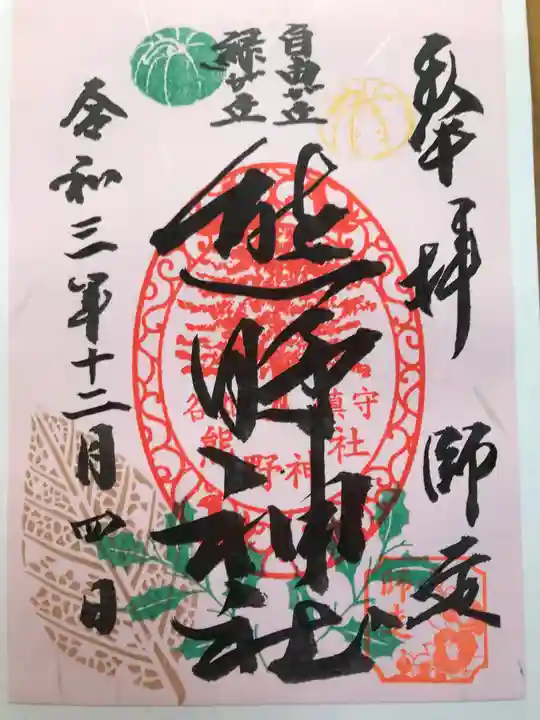 奉拝
師走
自由が丘
緑が丘
熊野神社
令和三年十二月四日
鎮守
熊野神社
師走